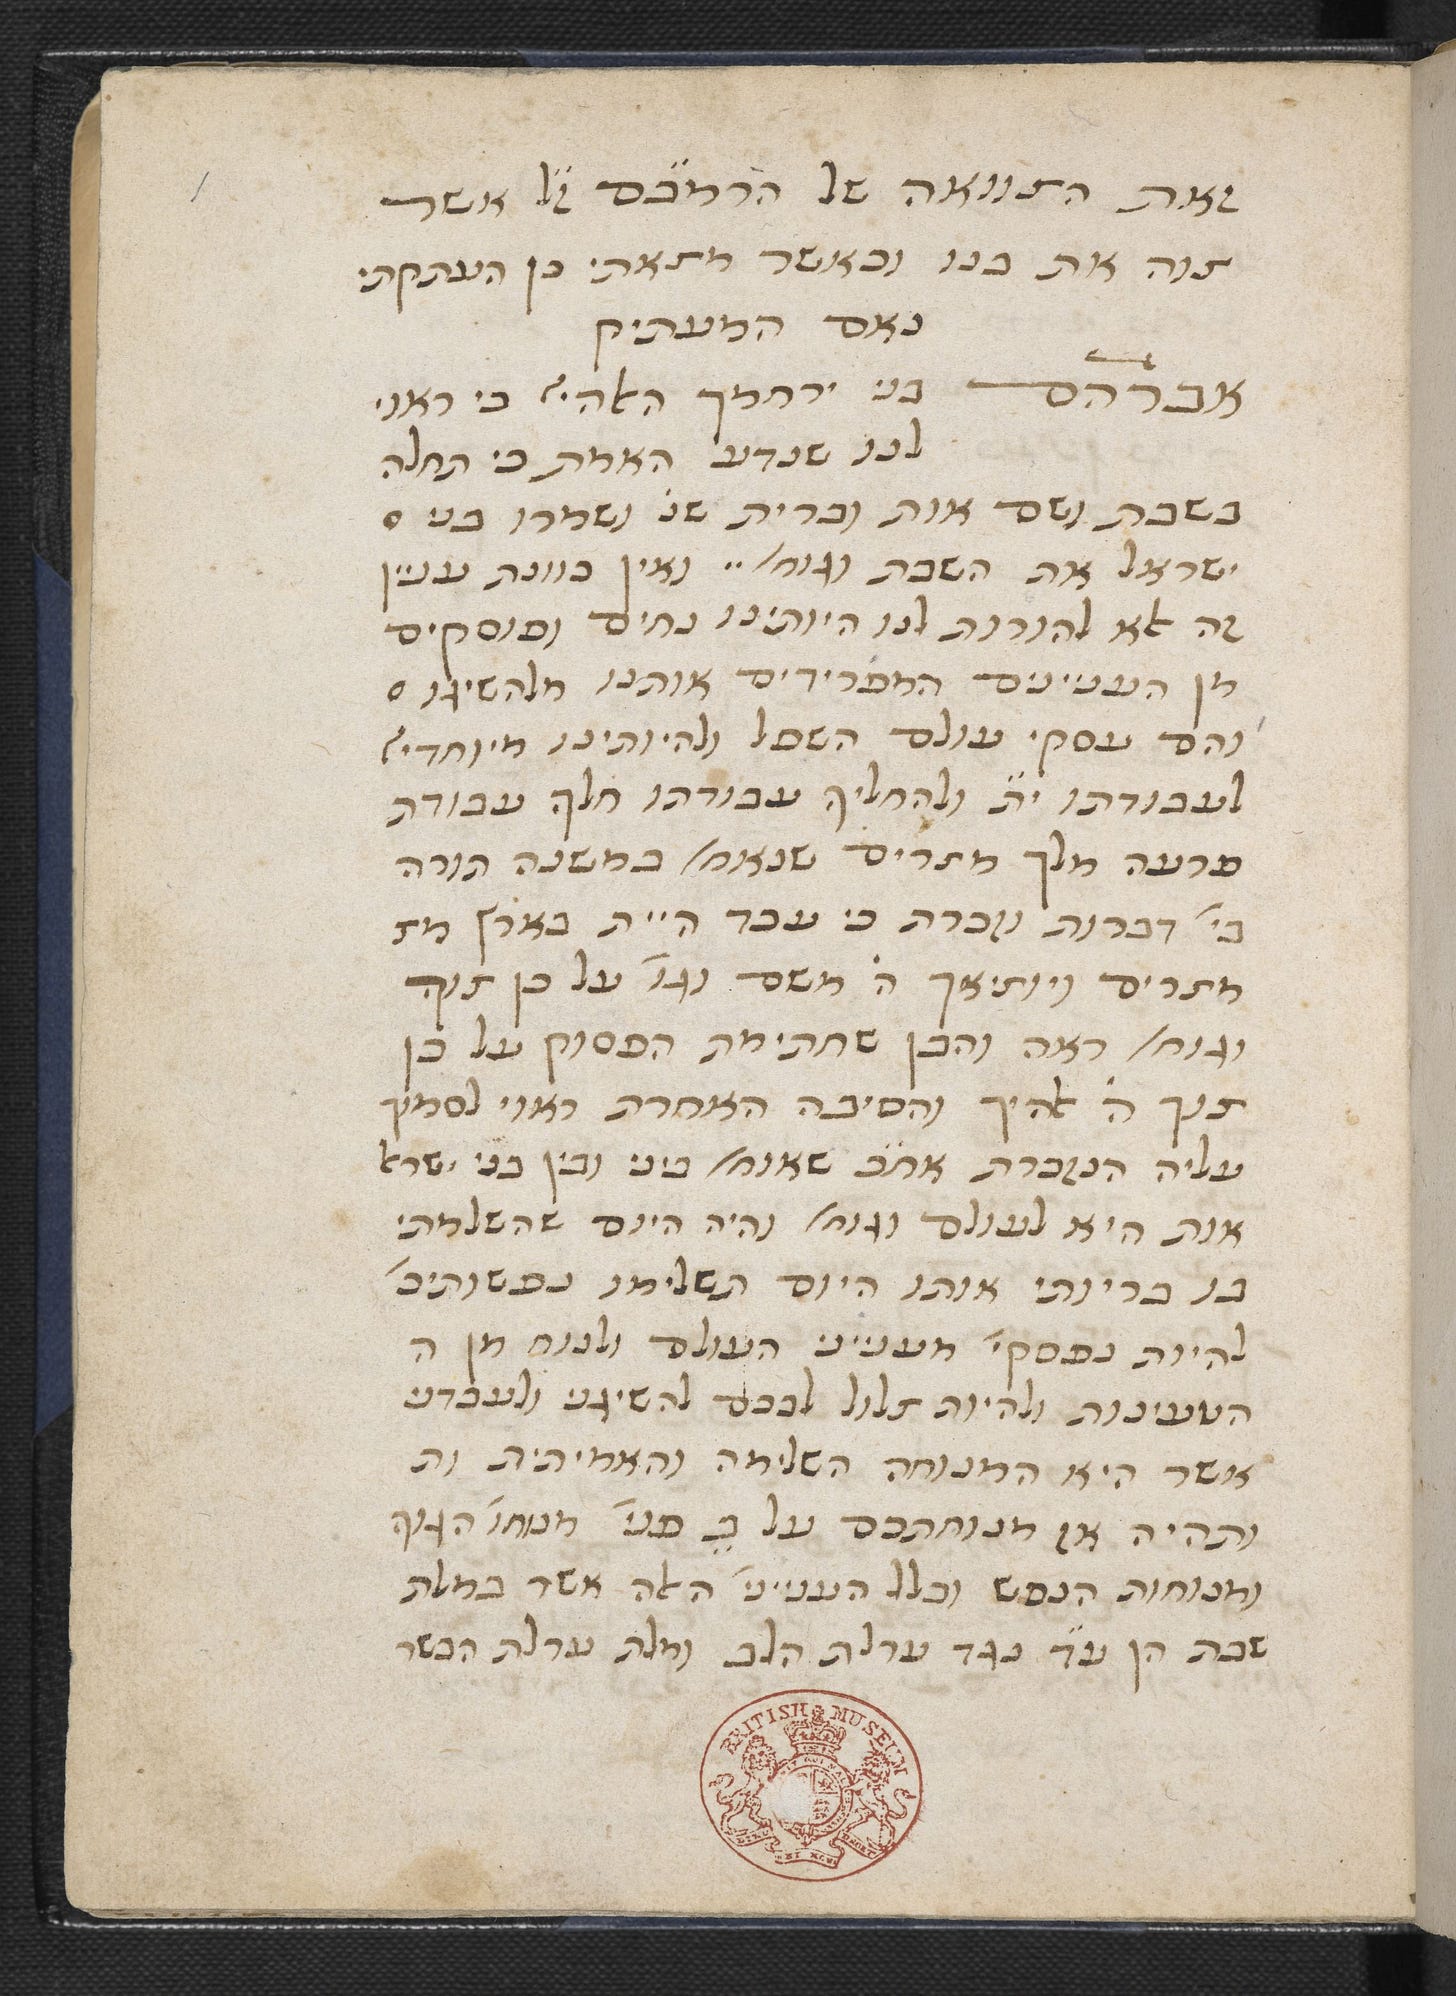 זאת הצוואה של הרמב״ם ז״ל אשר
צוה את בנו וכאשר מצאתי כן העתקתי
נאם המעתיק
אברהם בני ירחמך האהי׳ כי ראוי
לנו שנדע האמת כי תחלה
בשבת ושם אות וברית שנ׳ ושמרו בני
ישראל את השבת וגומ׳ ואין כוונת עניין
זה אלא להורות לנו היותינו נחים ופוסקים
מן העניינים המפרידים אותנו מלהשיגו
והם עסקי עולם השפל ולהיותינו מיוחדי׳
לעבודתו ית׳ ולהחליף עבודתו חלף עבודת
פרעה מלך מצרים שנאמ׳ במשנה תורה
בי׳ דברות וזכרת כי עבד היית בארץ מצ
מצרים ויוציאך ה׳ משם וגו׳ על כן צוך
וגומ׳ ראה והבן שחתימת הפסוק על כן
צוך ה׳ אלהיך והסיבה האחרת ראוי לסמוך
עליה הנזכרת אח״כ שאומ׳ ביני ובין בני ישראל
אות היא לעולם וגומ׳ והיה היום שהשלמתי
בו בריותי אותו היום תשלימו נפשותיכ׳
להיות נפסקי׳ מענייני העולם ולנוח מן ה
הטעינות ולהיות צלול לבכם להשיגני ולעבדני
אשר היא המנוחה השלימה והאמיתית ות
ותהיה אז מנוחתכם על ב׳ פני׳ מנוחו׳ הגוף
ומנוחות הנפש וכלל העניני׳ האלה אשר במלת
שבת הן ע״ד נגד ערלת הלב ומלת ערלת הבשר
BRITISH MUSEUM